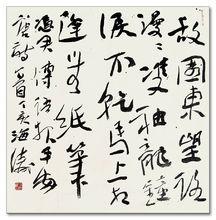 故園東望路
漫漫雙袖龍鐘
淚不乾馬上相
逢無紙筆
憑君傳語報平安
唐詩 海濤